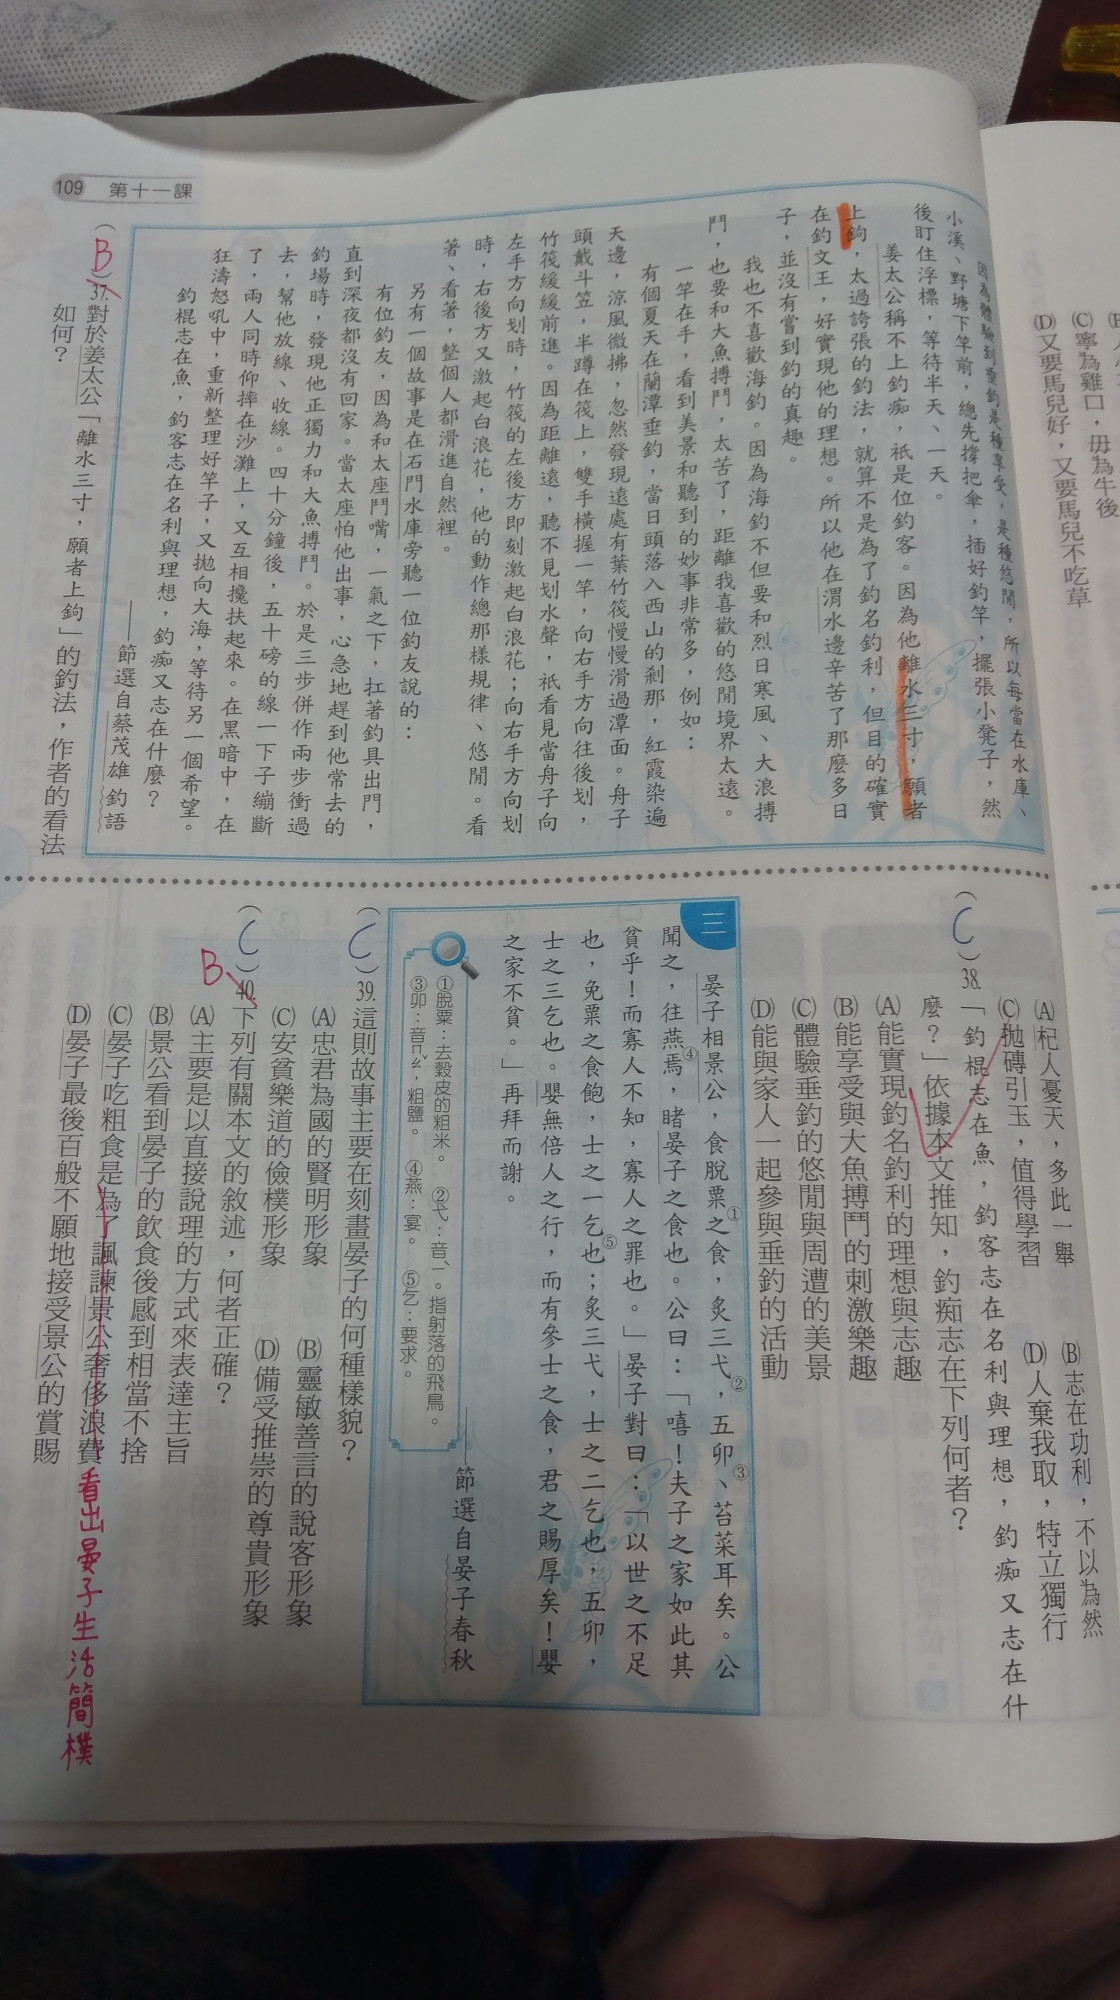 (D) 又要馬兒好，又要馬兒不吃草
(C) 寧為雞口，毋為牛後
109 第十一課
因為體驗到垂釣是種享受，是種悠閒，所以每當在水庫、
小溪、野塘下竿前，總先撐把傘，插好釣竿，擺張小凳子，然
後盯住浮標，等待半天、一天。
姜太公稱不上釣痴，祇是位釣客。因為他離水三寸，願者
上鉤，太過誇張的釣法，就算不是為了釣名釣利，但目的確實
在釣文王，好實現他的理想。所以他在渭水邊辛苦了那麼多日
子，並沒有嘗到釣的真趣。
我也不喜歡海釣。因為海釣不但要和烈日寒風、大浪搏
鬥，也要和大魚搏鬥，太苦了，距離我喜歡的悠閒境界太遠。
一竿在手，看到美景和聽到的妙事非常多，例如：
有個夏天在蘭潭垂釣，當日頭落入西山的剎那，紅霞染遍
天邊，涼風微拂，忽然發現遠處有葉竹筏慢慢滑過潭面。舟子
頭戴斗笠，半蹲在筏上，雙手橫握一竿，向右手方向往後划，
竹筏緩緩前進。因為距離遠，聽不見划水聲，祇看見當舟子向
左手方向划時，竹筏的左後方即刻激起白浪花；向右手方向划
時，右後方又激起白浪花，他的動作總那樣規律、悠閒。看
著、看著，整個人都滑進自然裡。
另有一個故事是在石門水庫旁聽一位釣友說的：
有位釣友，因為和太座鬥嘴，一氣之下，扛著釣具出門，
直到深夜都沒有回家。當太座怕他出事，心急地趕到他常去的
釣場時，發現他正獨力和大魚搏鬥。於是三步併作兩步衝過
去，幫他放線、收線。四十分鐘後，五十磅的線一下子繃斷
了，兩人同時仰摔在沙灘上，又互相攙扶起來。在黑暗中，在
狂濤怒吼中，重新整理好竿子，又拋向大海，等待另一個希望。
釣棍志在魚，釣客志在名利與理想，釣痴又志在什麼？
——節選自蔡茂雄釣語
(B) 37. 對於姜太公「離水三寸，願者上鉤」的釣法，作者的看法
如何？
(A) 杞人憂天，多此一舉 (B) 志在功利，不以為然
(C) 拋磚引玉，值得學習 (D) 人棄我取，特立獨行
(C) 38. 「釣棍志在魚，釣客志在名利與理想，釣痴又志在什
麼？」依據本文推知，釣痴志在下列何者？
(A) 能實現釣名釣利的理想與志趣
(B) 能享受與大魚搏鬥的刺激樂趣
(C) 體驗垂釣的悠閒與周遭的美景
(D) 能與家人一起參與垂釣的活動
三
晏子相景公，食脫粟①之食，炙三弋②，五卯③、苔菜耳矣。公
聞之，往燕④焉，睹晏子之食也。公曰：「嘻！夫子之家如此其
貧乎！而寡人不知，寡人之罪也。」晏子對曰：「以世之不足
也，免粟之食飽，士之一乞⑤也；炙三弋，士之二乞也；五卯，
士之三乞也。嬰無倍人之行，而有參士之食，君之賜厚矣！嬰
之家不貧。」再拜而謝。
——節選自晏子春秋
①脫粟：去穀皮的粗米。 ②弋：音ㄧˋ。指射落的飛鳥。
③卯：音ㄇㄠˇ，粗鹽。 ④燕：宴。 ⑤乞：要求。
(C) 39. 這則故事主要在刻畫晏子的何種樣貌？
(A) 忠君為國的賢明形象 (B) 靈敏善言的說客形象
(C) 安貧樂道的儉樸形象 (D) 備受推崇的尊貴形象
(C) B 40. 下列有關本文的敘述，何者正確？
(A) 主要是以直接說理的方式來表達主旨
(B) 景公看到晏子的飲食後感到相當不捨
(C) 晏子吃粗食是為了諷諫景公奢侈浪費 看出晏子生活簡樸
(D) 晏子最後百般不願地接受景公的賞賜